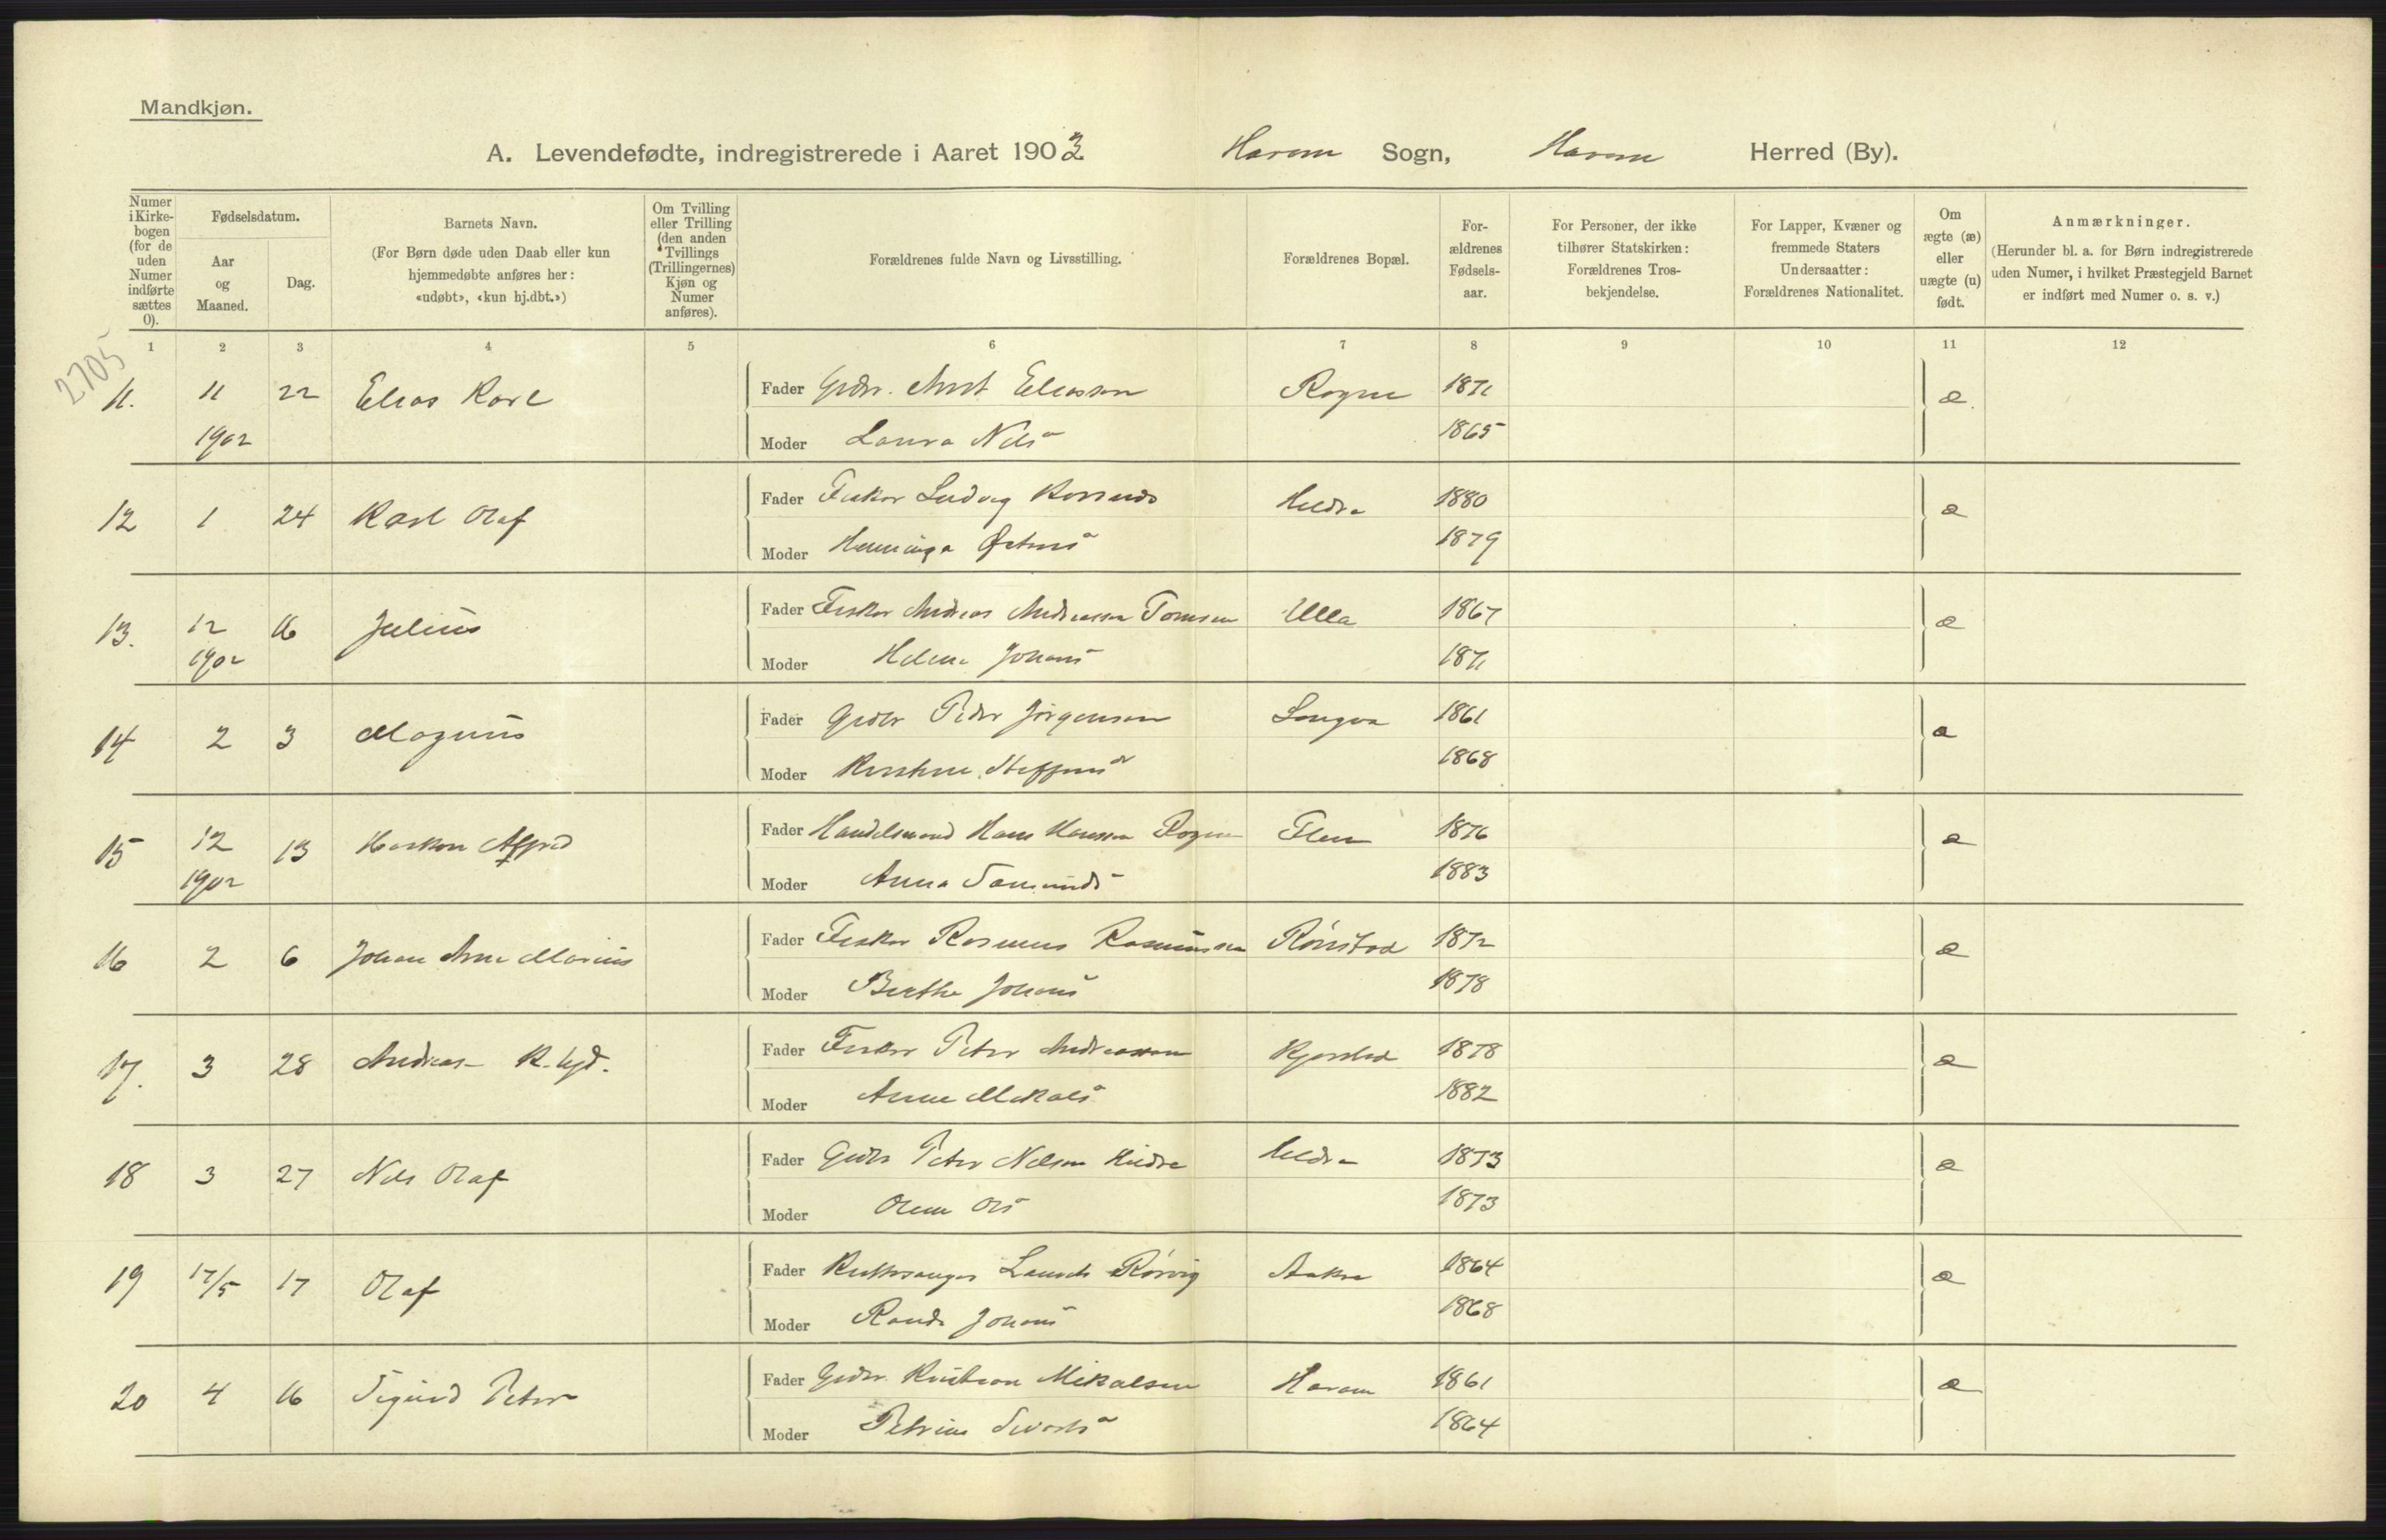 Mandkjøn.
A. Levendefødte, indregistrerede i Aaret 1903 Haram Sogn, Haram Herred (By).
Numer i Kirke-bogen (for de uden Numer indførte sættes 0).
Fødselsdatum.
Aar og Maaned.
Dag.
Barnets Navn.
(For Børn døde uden Daab eller kun hjemmedøbte anføres her: «udøbt», «kun hj.dbt.»)
Om Tvilling eller Trilling (den anden Tvillings (Trillingernes) Kjøn og Numer anføres).
Forældrenes fulde Navn og Livsstilling.
Forældrenes Bopæl.
For-ældrenes Fødsels-aar.
For Personer, der ikke tilhører Statskirken: Forældrenes Tros-bekjendelse.
For Lapper, Kvæner og fremmede Staters Undersaatter: Forældrenes Nationalitet.
Om ægte (æ) eller uægte (u) født.
Anmærkninger.
(Herunder bl. a. for Børn indregistrerede uden Numer, i hvilket Præstegjeld Barnet er indført med Numer o. s. v.)
1 2 3 4 5 6 7 8 9 10 11 12
2705
11. 11 22 Elias Karl Fader Grdbr. Eliassen Rogne 1871 æ
1902 Moder Laura Nilsd 1865
12 1 24 Karl Olaf Fader Fisker Ludvig Hildre 1880 æ
Moder 1879
13. 12 16 Julius Fader Fisker Andreas Andreassen Ulla 1867 æ
1902 Moder Helene Johansd 1871
14 2 3 Magnus Fader Grdbr Peder Jørgensen Longva 1861 æ
Moder Steffensd 1868
15 12 13 Haakon Alfred Fader Handelsmand Hans Hanssen Rogne Flem 1876 æ
1902 Moder Anna 1883
16 2 6 Johan Arne Marius Fader Fisker Rasmus Rasmussen Rønstad 1872 æ
Moder Berthe Johansd 1878
17. 3 28 Andreas Fader Fisker Peter Andreassen Kjerstad 1878 æ
Moder Anne Mikalsd 1882
18 3 27 Nils Olaf Fader Grdbr Peter Nilsen Hildre Hildre 1873 æ
Moder Olsd 1873
19 17/5 17 Olaf Fader Kirkesanger Rørvig 1864 æ
Moder Johansd 1868
20 4 16 Sigurd Peter Fader Grdbr. Kristian Mikalsen Haram 1861 æ
Moder Petrine 1864